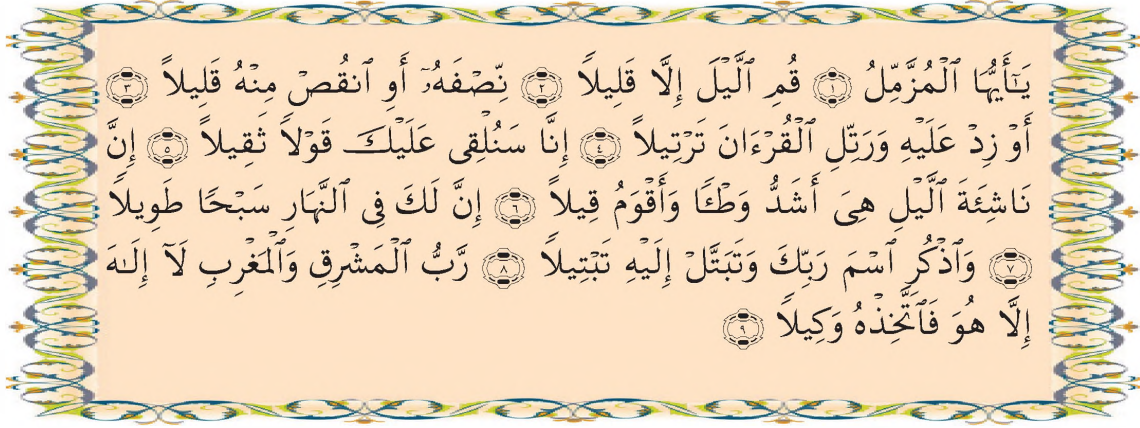 يَٰٓأَيُّهَا ٱلْمُزَّمِّلُ ۝١ قُمِ ٱلَّيْلَ إِلَّا قَلِيلًا ۝٢ نِّصْفَهُۥٓ أَوِ ٱنقُصْ مِنْهُ قَلِيلًا ۝٣
أَوْ زِدْ عَلَيْهِ وَرَتِّلِ ٱلْقُرْءَانَ تَرْتِيلًا ۝٤ إِنَّا سَنُلْقِى عَلَيْكَ قَوْلًا ثَقِيلًا ۝٥ إِنَّ
نَاشِئَةَ ٱلَّيْلِ هِىَ أَشَدُّ وَطْـًٔا وَأَقْوَمُ قِيلًا ۝٦ إِنَّ لَكَ فِى ٱلنَّهَارِ سَبْحًا طَوِيلًا
۝٧ وَٱذْكُرِ ٱسْمَ رَبِّكَ وَتَبَتَّلْ إِلَيْهِ تَبْتِيلًا ۝٨ رَّبُّ ٱلْمَشْرِقِ وَٱلْمَغْرِبِ لَآ إِلَٰهَ
إِلَّا هُوَ فَٱتَّخِذْهُ وَكِيلًا ۝٩